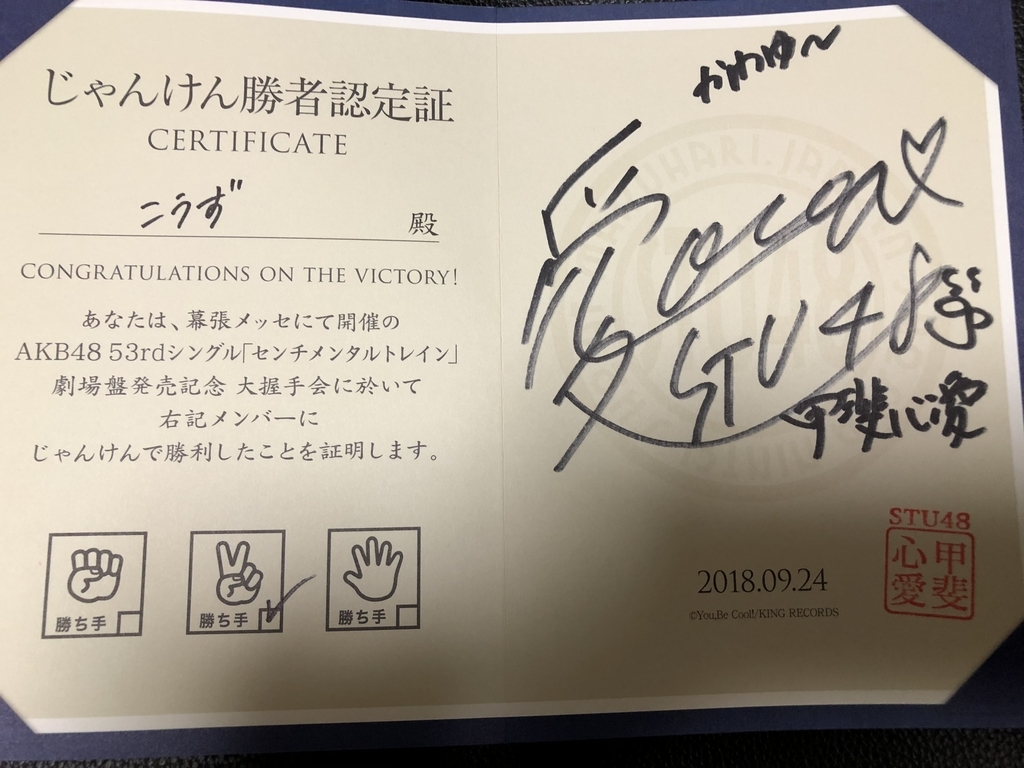 じゃんけん勝者認定証
CERTIFICATE
こうず 殿
CONGRATULATIONS ON THE VICTORY!
あなたは、幕張メッセにて開催の
AKB48 53rdシングル「センチメンタルトレイン」
劇場盤発売記念 大握手会に於いて
右記メンバーに
じゃんけんで勝利したことを証明します。
勝ち手
勝ち手
勝ち手
かわゆ〜
STU48
甲斐心愛
2018.09.24
©You,Be Cool!/KING RECORDS
STU48
甲斐
心愛